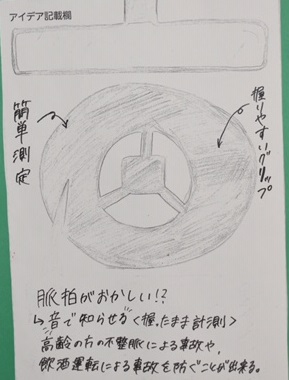 アイデア記載欄
簡単測定
握りやすいグリップ
脈拍がおかしい!?
↳音で知らせる<握ったまま計測>
高齢の方の不整脈による事故や、
飲酒運転による事故を防ぐことが出来る。